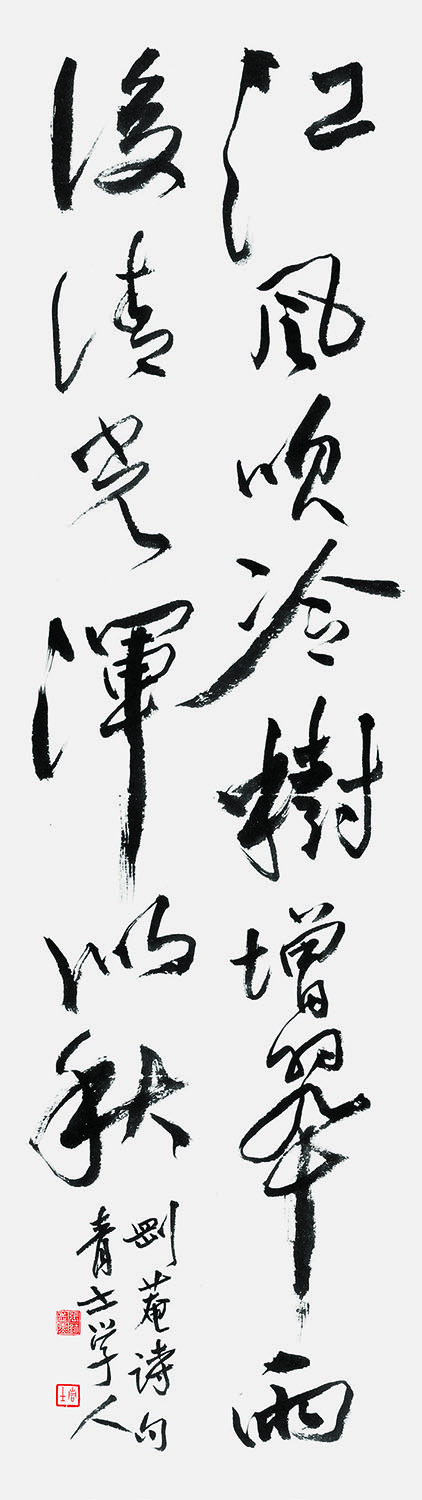 江风吹冷樹增翠雨
後清光渾似秋
剛菴诗句
青士学人